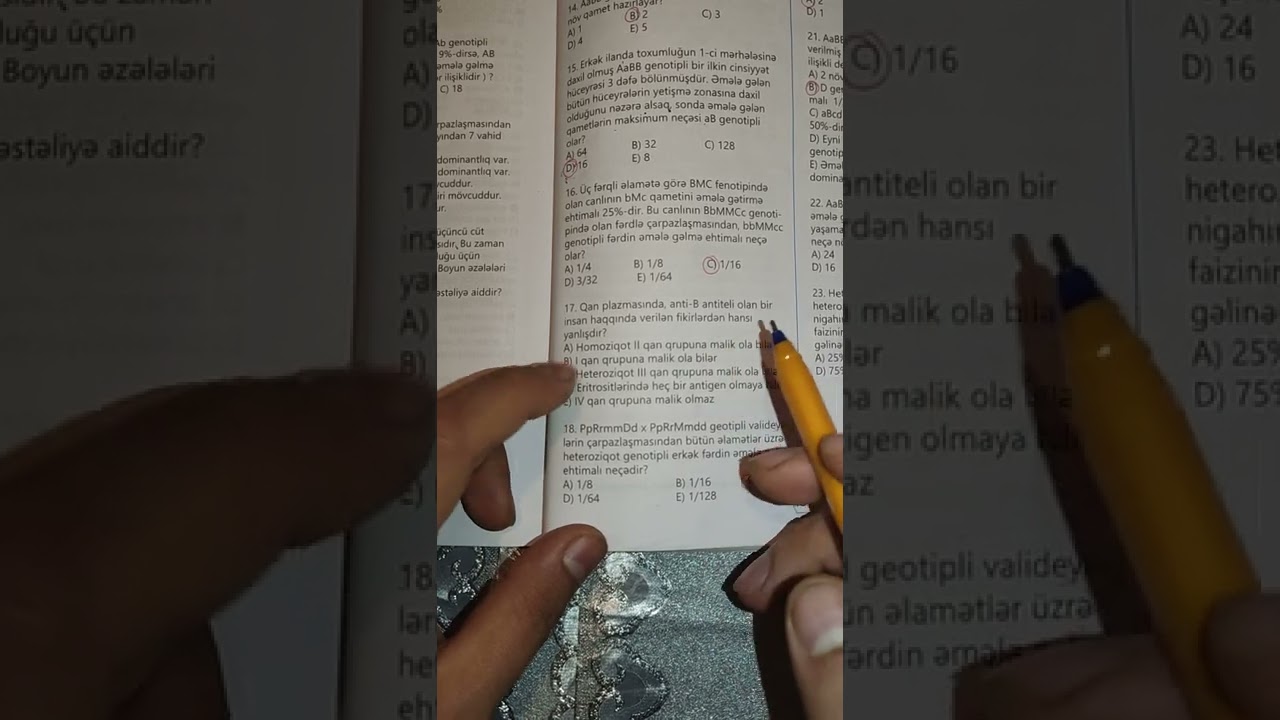 Ab genotipli
9%-dirsə, AB
əmələ gəlmə
r ilişiklidir ) ?
C) 18
rpazlaşmasından
yından 7 vahid
dominantlıq var.
dominantlıq var.
vcuddur.
iri mövcuddur.
ur.
üçüncü cüt
sıdır. Bu zaman
luğu üçün
Boyun əzələləri
əstəliyə aiddir?
növ qamet hazırlayar?
A) 1
B) 2
C) 3
D) 4
E) 5
15. Erkək ilanda toxumluğun 1-ci mərhələsinə
daxil olmuş AaBB genotipli bir ilkin cinsiyyət
hüceyrəsi 3 dəfə bölünmüşdür. Əmələ gələn
bütün hüceyrələrin yetişmə zonasına daxil
olduğunu nəzərə alsaq, sonda əmələ gələn
qametlərin maksimum neçəsi aB genotipli
olar?
A) 64
B) 32
C) 128
D) 16
E) 8
16. Üç fərqli əlamətə görə BMC fenotipində
olan canlının bMc qametini əmələ gətirmə
ehtimalı 25%-dir. Bu canlının BbMMCc genoti-
pində olan fərdlə çarpazlaşmasından, bbMMcc
genotipli fərdin əmələ gəlmə ehtimalı neçə
olar?
A) 1/4
B) 1/8
C) 1/16
D) 3/32
E) 1/64
17. Qan plazmasında, anti-B antiteli olan bir
insan haqqında verilən fikirlərdən hansı
yanlışdır?
A) Homoziqot II qan qrupuna malik ola
B) I qan qrupuna malik ola bilər
Heteroziqot III qan qrupuna malik ola
Eritrositlərində heç bir antigen olmaya
E) IV qan qrupuna malik olmaz
18. PpRrmmDd x PpRrMmdd geotipli validey
lərin çarpazlaşmasından bütün əlamətlər üzrə
heteroziqot genotipli erkək fərdin əmələ
ehtimalı neçədir?
A) 1/8
B) 1/16
D) 1/64
E) 1/128
D) 1
21. AaBB
verilmiş
ilişikli de
A) 2 növ
B) D ge
malı 1/
C) aBcd
50%-di
D) Eyni
genotip
E) Əmə
domina
22. AaB
əmələ g
yaşama
neçə n
A) 24
D) 16
23. Het
hetero
nigahı
faizinir
gəlinə
A) 25%
D) 75%